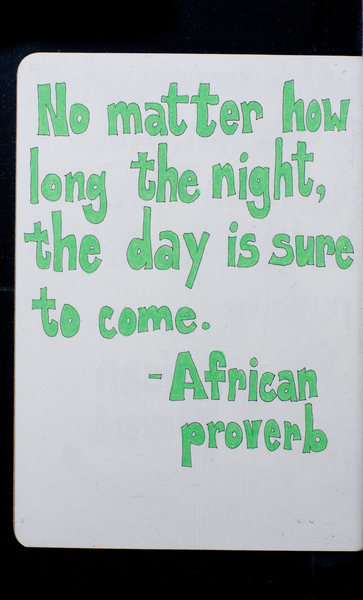 No matter how
long the night,
the day is sure
to come.
- African
proverb